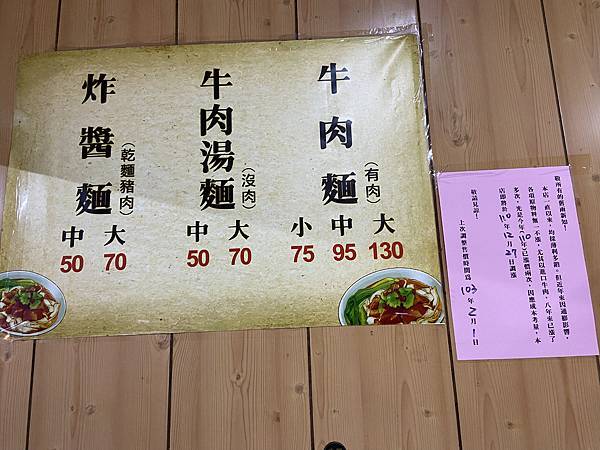 牛肉麵(有肉)
大 中 小
130 95 75
牛肉湯麵(沒肉)
大 中
70 50
炸醬麵(乾麵豬肉)
大 中
70 50
敬所有的舊雨新知!
本店一直以來,均採薄利多銷。但近年來因通膨影響,
各項原物料無一不漲,尤其以進口牛肉,八年來已漲了
多次,光是今年(110年)已漲價兩次,因應成本考量,本
店即將於110年12月27日調漲
敬請見諒!
上次調整售價時間為 103年2月1日